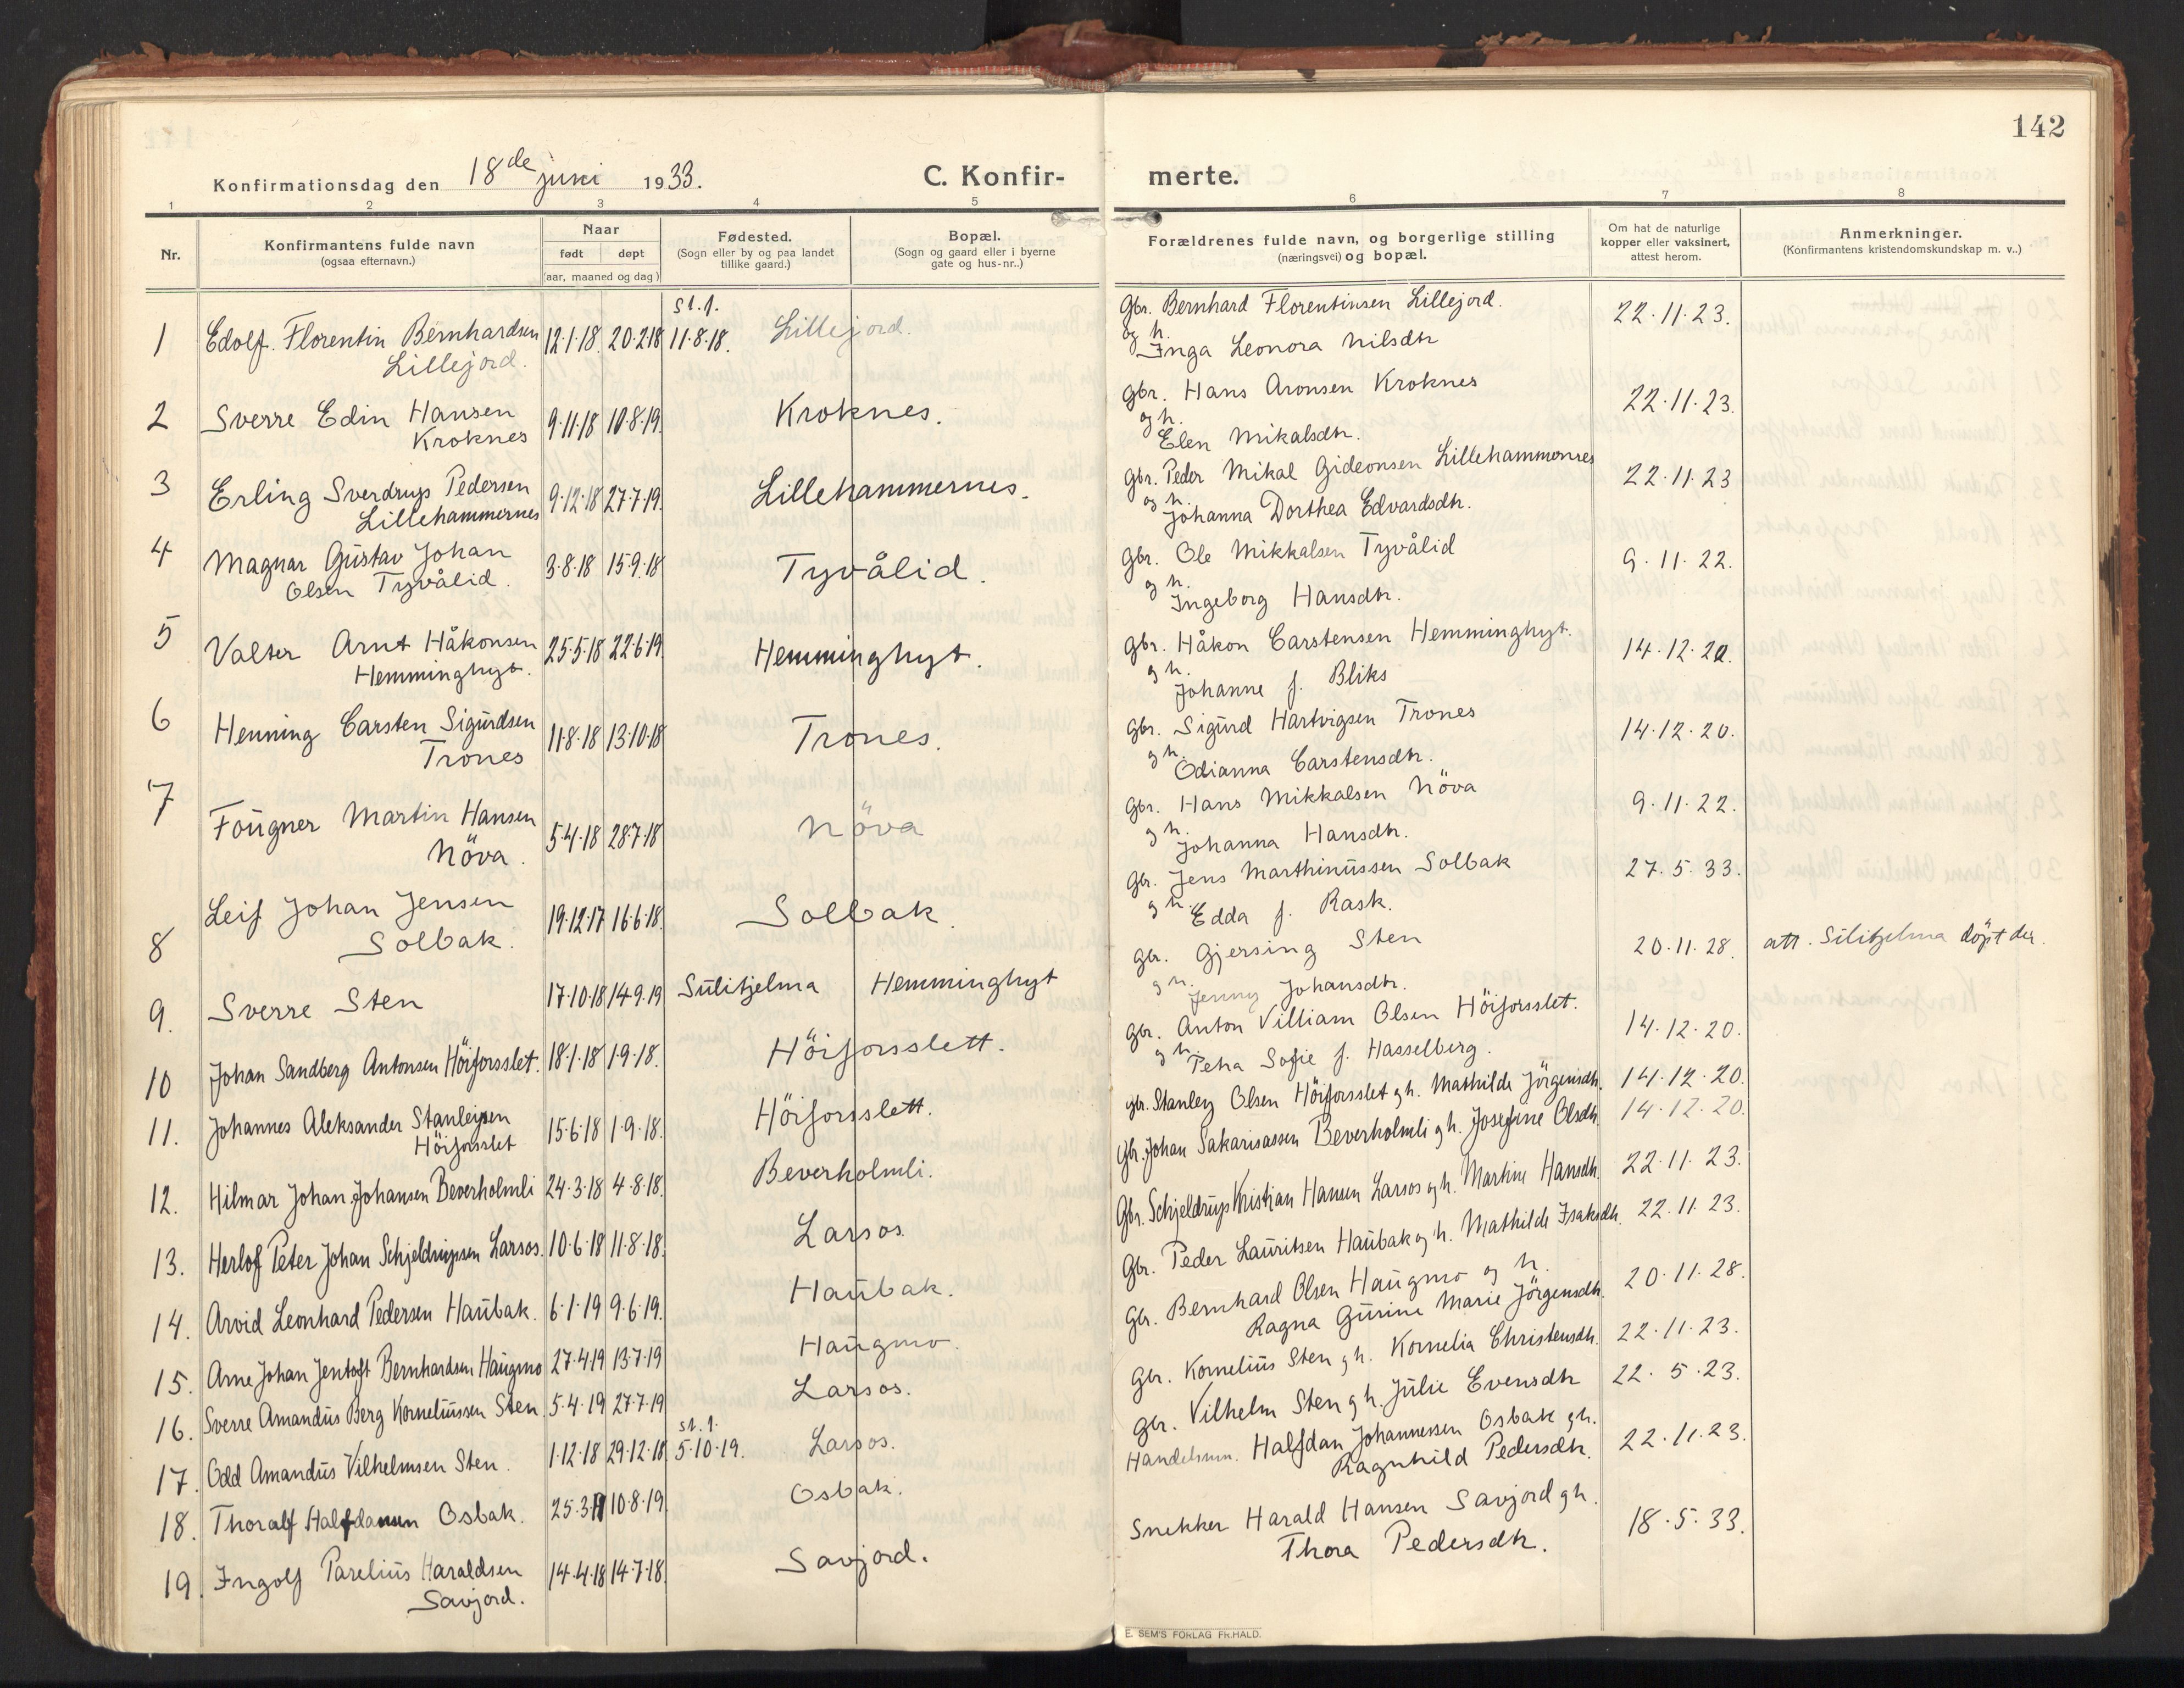 142
Konfirmationsdag den 18de juni 1933.
C. Konfir-
merte.
1 2 3 4 5 6 7 8
Nr.
Konfirmantens fulde navn
(ogsaa efternavn.)
Naar
født døpt
(aar, maaned og dag)
Fødested.
(Sogn eller by og paa landet
tillike gaard.)
Bopæl.
(Sogn og gaard eller i byerne
gate og hus-nr..)
Forældrenes fulde navn, og borgerlige stilling
(næringsvei) og bopæl.
Om hat de naturlige
kopper eller vaksinert,
attest herom.
Anmerkninger.
(Konfirmantens kristendomskundskap m. v..)
1 Edolf. Florentin Bernhardsen 12.1.18. 20.2.18 st.f. 11.8.18. Lillejord.
Lillejord.
Gbr. Bernhard Florentinsen Lillejord. 22.11.23.
og h. Inga Leonora Nilsdtr
2 Sverre Edin Hansen 9.11.18 10.8.19. Kroknes.
Kroknes
Gbr. Hans Aronsen Kroknes 22.11.23.
og h. Elen Mikalsdtr.
3 Erling Sverdrup Pedersen 9.12.18 27.7.19. Lillehammernes.
Lillehammernes
Gbr. Peder Mikal Gideonsen Lillehammernes 22.11.23
og h. Johanna Dorthea Edvardsdtr.
4 Magnar Gustav Johan 3.8.18 15.9.18 Tyvålid.
Olsen Tyvålid.
Gbr. Ole Mikkalsen Tyvålid 9.11.22.
og h. Ingeborg Hansdtr.
5 Valter Arnt Håkonsen 25.5.18 22.6.19. Hemminghyt.
Hemminghyt.
Gbr. Håkon Carstensen Hemminghyt. 14.12.20.
og h. Johanne f. Bliks
6 Henning Carsten Sigurdsen 11.8.18 13.10.18 Trones.
Trones
Gbr. Sigurd Hartvigsen Trones 14.12.20.
og h. Odianna Carstensdtr.
7 Fougner Martin Hansen 5.4.18 28.7.18 Növa
Növa.
Gbr. Hans Mikkalsen Növa 9.11.22.
og h. Johanna Hansdtr.
8 Leif Johan Jensen 19.12.17 16.6.18. Solbak.
Solbak.
Gbr. Jens Marthinussen Solbak 27.5.33.
og h. Edda f. Rask.
9. Sverre Sten 17.10.18 14.9.19 Sulitjelma Hemminghyt
Gbr. Gjersing Sten 20.11.28. att. Silitjelma döpt der.
og h. Jenny Johansdtr.
10 Johan Sandberg Antonsen Höiforsslet. 18.1.18 1.9.18. Höiforsslett.
Gbr. Anton Villiam Olsen Höiforsslet. 14.12.20.
og h. Petra Sofie f. Hasselberg.
11. Johannes Aleksander Stanleysen 15.6.18 1.9.18. Höiforsslett.
Höiforsslet
Gbr. Stanley Olsen Höiforsslet og h. Mathilde Jörgensdtr. 14.12.20.
12. Hilmar Johan Johansen Beverholmli 24.3.18 4.8.18. Beverholmli.
Gbr. Johan Sakariassen Beverholmli og h. Josefine Olsdtr. 14.12.20.
13. Herlof Peter Johan Schjeldrupsen Larsos. 10.6.18 11.8.18. Larsos.
Gbr. Schjeldrup Kristian Hansen Larsos og h. Martine Hansdtr. 22.11.23.
14. Arvid Leonhard Pedersen Haubak. 6.1.19 9.6.19. Haubak.
Gbr. Peder Lauritsen Haubak og h. Mathilde Isaksdtr. 22.11.23.
15. Arne Johan Jentoft Bernhardsen Haugmo 27.4.19 13.7.19 Haugmo.
Gbr. Bernhard Olsen Haugmo og h. 20.11.28.
Ragna Gurine Marie Jörgensdtr.
16. Sverre Amandus Berg Korneliussen Sten. 5.4.19 27.7.19 Larsos.
Gbr. Kornelius Sten og h. Kornelia Christensdtr. 22.11.23.
17. Odd Amandus Vilhelmsen Sten. 1.12.18 29.12.18 st.f. 5.10.19. Larsos.
Gbr. Vilhelm Sten og h. Julie Evensdtr 22.5.23.
18. Thoralf Halfdansen Osbak. 25.3.19 10.8.19. Osbak.
Handelsmn. Halfdan Johannessen Osbak og h. 22.11.23.
Ragnhild Pedersdtr.
19. Ingolf Parelius Haraldsen 14.4.18 14.7.18. Savjord.
Savjord.
Snekker Harald Hansen Savjord og h. 18.5.33.
Thora Pedersdtr.
E. SEM'S FORLAG FR.HALD.